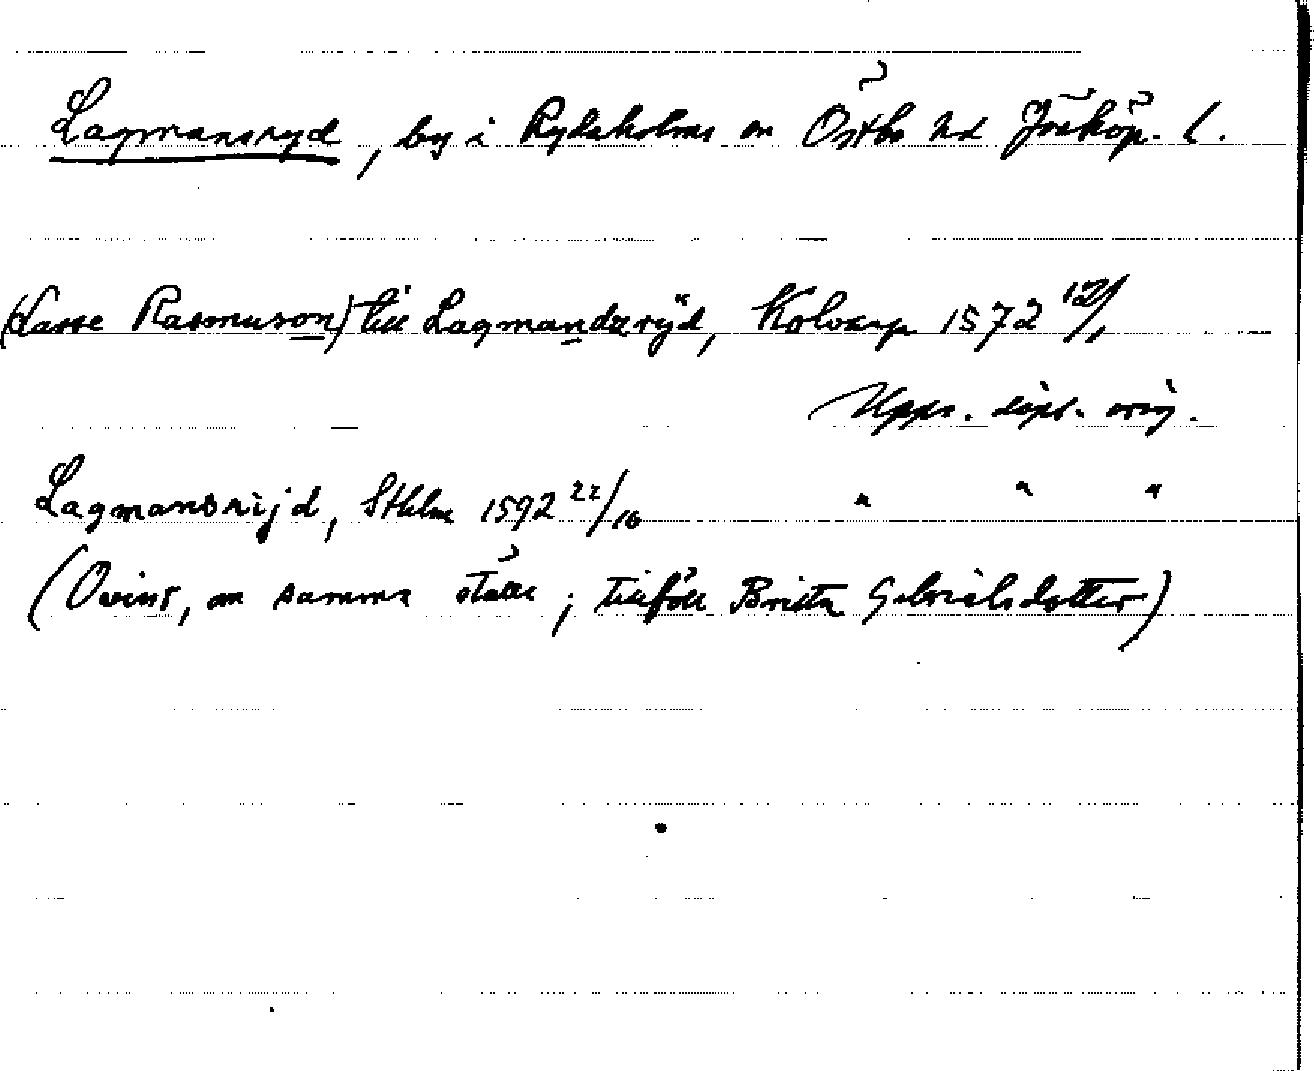 Lagmansryd, by i Rydaholms sn Östbo hd Jönköp. l.
(Lasse Rasmuson) till Lagmandzrÿd, Kolvarp 1572 12/1
Upps. dipl. orig.
Lagmansrijd, Sthlm 1592 22/10 " " "
(Ovisst, om samma ställe; tillföll Britta Gabrielsdotter)